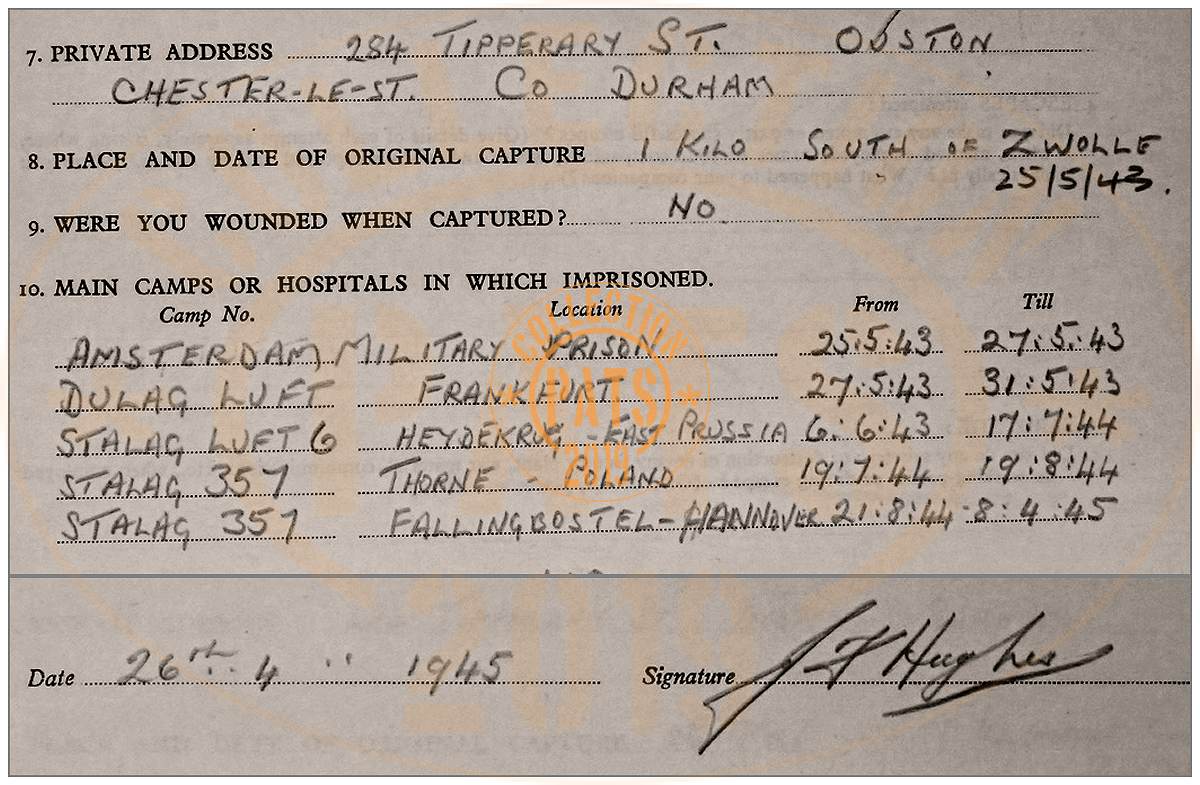 7. PRIVATE ADDRESS 284 TIPPERARY ST. OUSTON
CHESTER-LE-ST. CO DURHAM
8. PLACE AND DATE OF ORIGINAL CAPTURE 1 KILO SOUTH OF ZWOLLE
25/5/43.
9. WERE YOU WOUNDED WHEN CAPTURED? NO
10. MAIN CAMPS OR HOSPITALS IN WHICH IMPRISONED.
Camp No. Location From Till
AMSTERDAM MILITARY PRISON 25:5:43 27:5:43
DULAG LUFT FRANKFURT 27:5:43 31:5:43
STALAG LUFT 6 HEYDEKRUG - EAST PRUSSIA 6:6:43 17:7:44
STALAG 357 THORNE - POLAND 19:7:44 19:8:44
STALAG 357 FALLINGBOSTEL - HANNOVER 21:8:44 8:4:45
COLLECTION
PATS
2019
Date 26TH 4 " 1945 Signature J F Hughes